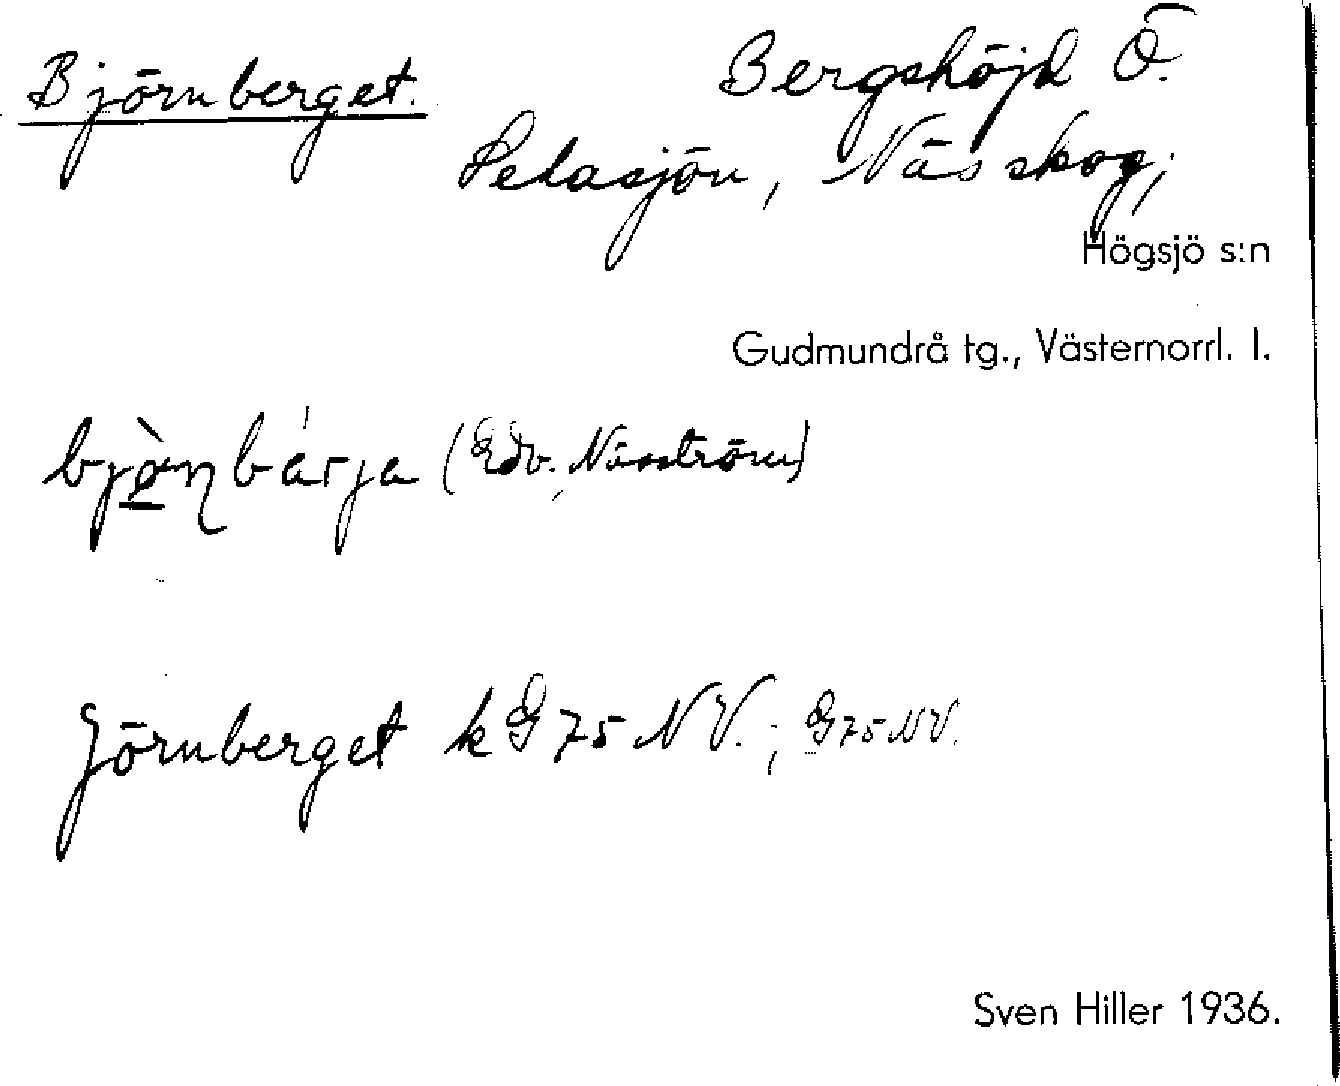 Björnberget.
Bergshöjd Ö.
Pelasjön, Näs skog,
Högsjö s:n
Gudmundrå tg., Västernorrl. l.
(Edv. Näsström)
Jörnberget k G 75 NV.; G 75 NV.
Sven Hiller 1936.